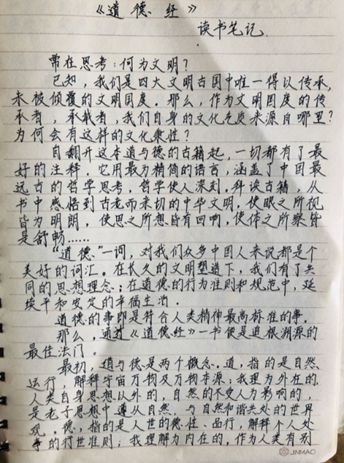 《道德经》
读书笔记
常在思考:何为文明?
已知,我们是四大文明古国中唯一得以传承,
未被倾覆的文明国度。那么,作为文明国度的传
承者,承载者,我们自身的文化气质来源自哪里?
为何会有这样的文化秉性?
自翻开这本道与德的古籍起,一切都有了最
好的注释,它用最为精简的语言,涵盖了中国最
远古的哲学思考,哲学使人深刻,科读古籍,从
书中感悟到古老而亲切的中华文明,使眼之所视
皆为明朗,使思之所想皆有回响,使体之所察皆
是舒畅……
"道德"一词,对我们众多中国人来说都是个
美好的词汇。在长久的文明塑造下,我们有了共
同的思想理念:在道德的行为准则和规范中,延
续平和安定的幸福生活。
道德的事即是符合人类精神最高标准的事。
那么,通过《道德经》一书便是道根溯源的
最佳法门。
最初,道与德是两个概念。道,指的是自然
运行,解释宇宙万物及万物本源;我理为外在的,
人类自身思想以外的,自然的不受人力影响的,
是老子思想中遵从自然、与自然和谐共处的世界
观。德,指的是人世的德性、品行,解释个人处
事的行世准则;我理解为内在的,作为人类有别
JINMAO